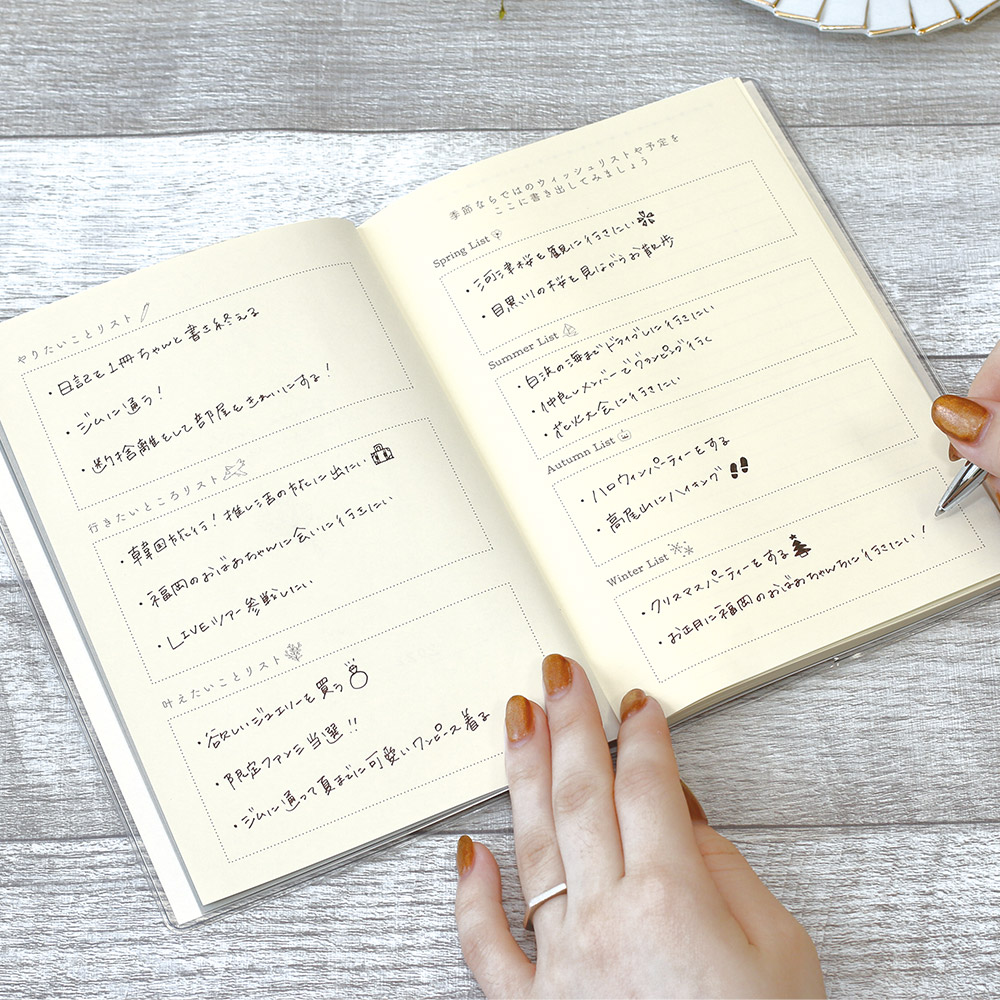 やりたいことリスト
・日記を1冊ちゃんと書き終える
・ジムに通う!
・断捨離をして部屋をきれいにする!
行きたいところリスト
・韓国旅行!推し活の旅に出たい
・福岡のおばあちゃんに会いに行きたい
・LIVEツアー参戦したい
叶えたいことリスト
・欲しいジュエリーを買う
・限定ファンミ当選!!
・ジムに通って夏までに可愛いワンピース着る
季節ならではのウィッシュリストや予定を
ここに書き出してみましょう
Spring List
・河津桜を観に行きたい
・目黒川の桜を見ながらお散歩
Summer List
・白浜の海までドライブしに行きたい
・仲良しメンバーでグランピング行く
・花火大会に行きたい
Autumn List
・ハロウィンパーティーをする
・高尾山にハイキング
Winter List
・クリスマスパーティーをする
・お正月に福岡のおばあちゃんちに行きたい!